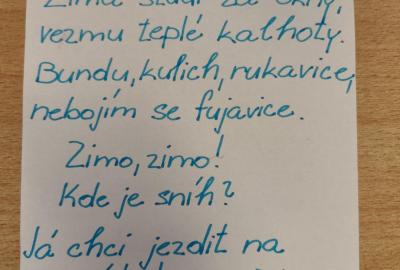 Zima studí za okny,
vezmu teplé kalhoty.
Bundu, kulich, rukavice,
nebojím se fujavice.
Zimo, zimo!
Kde je sníh?
Já chci jezdit na